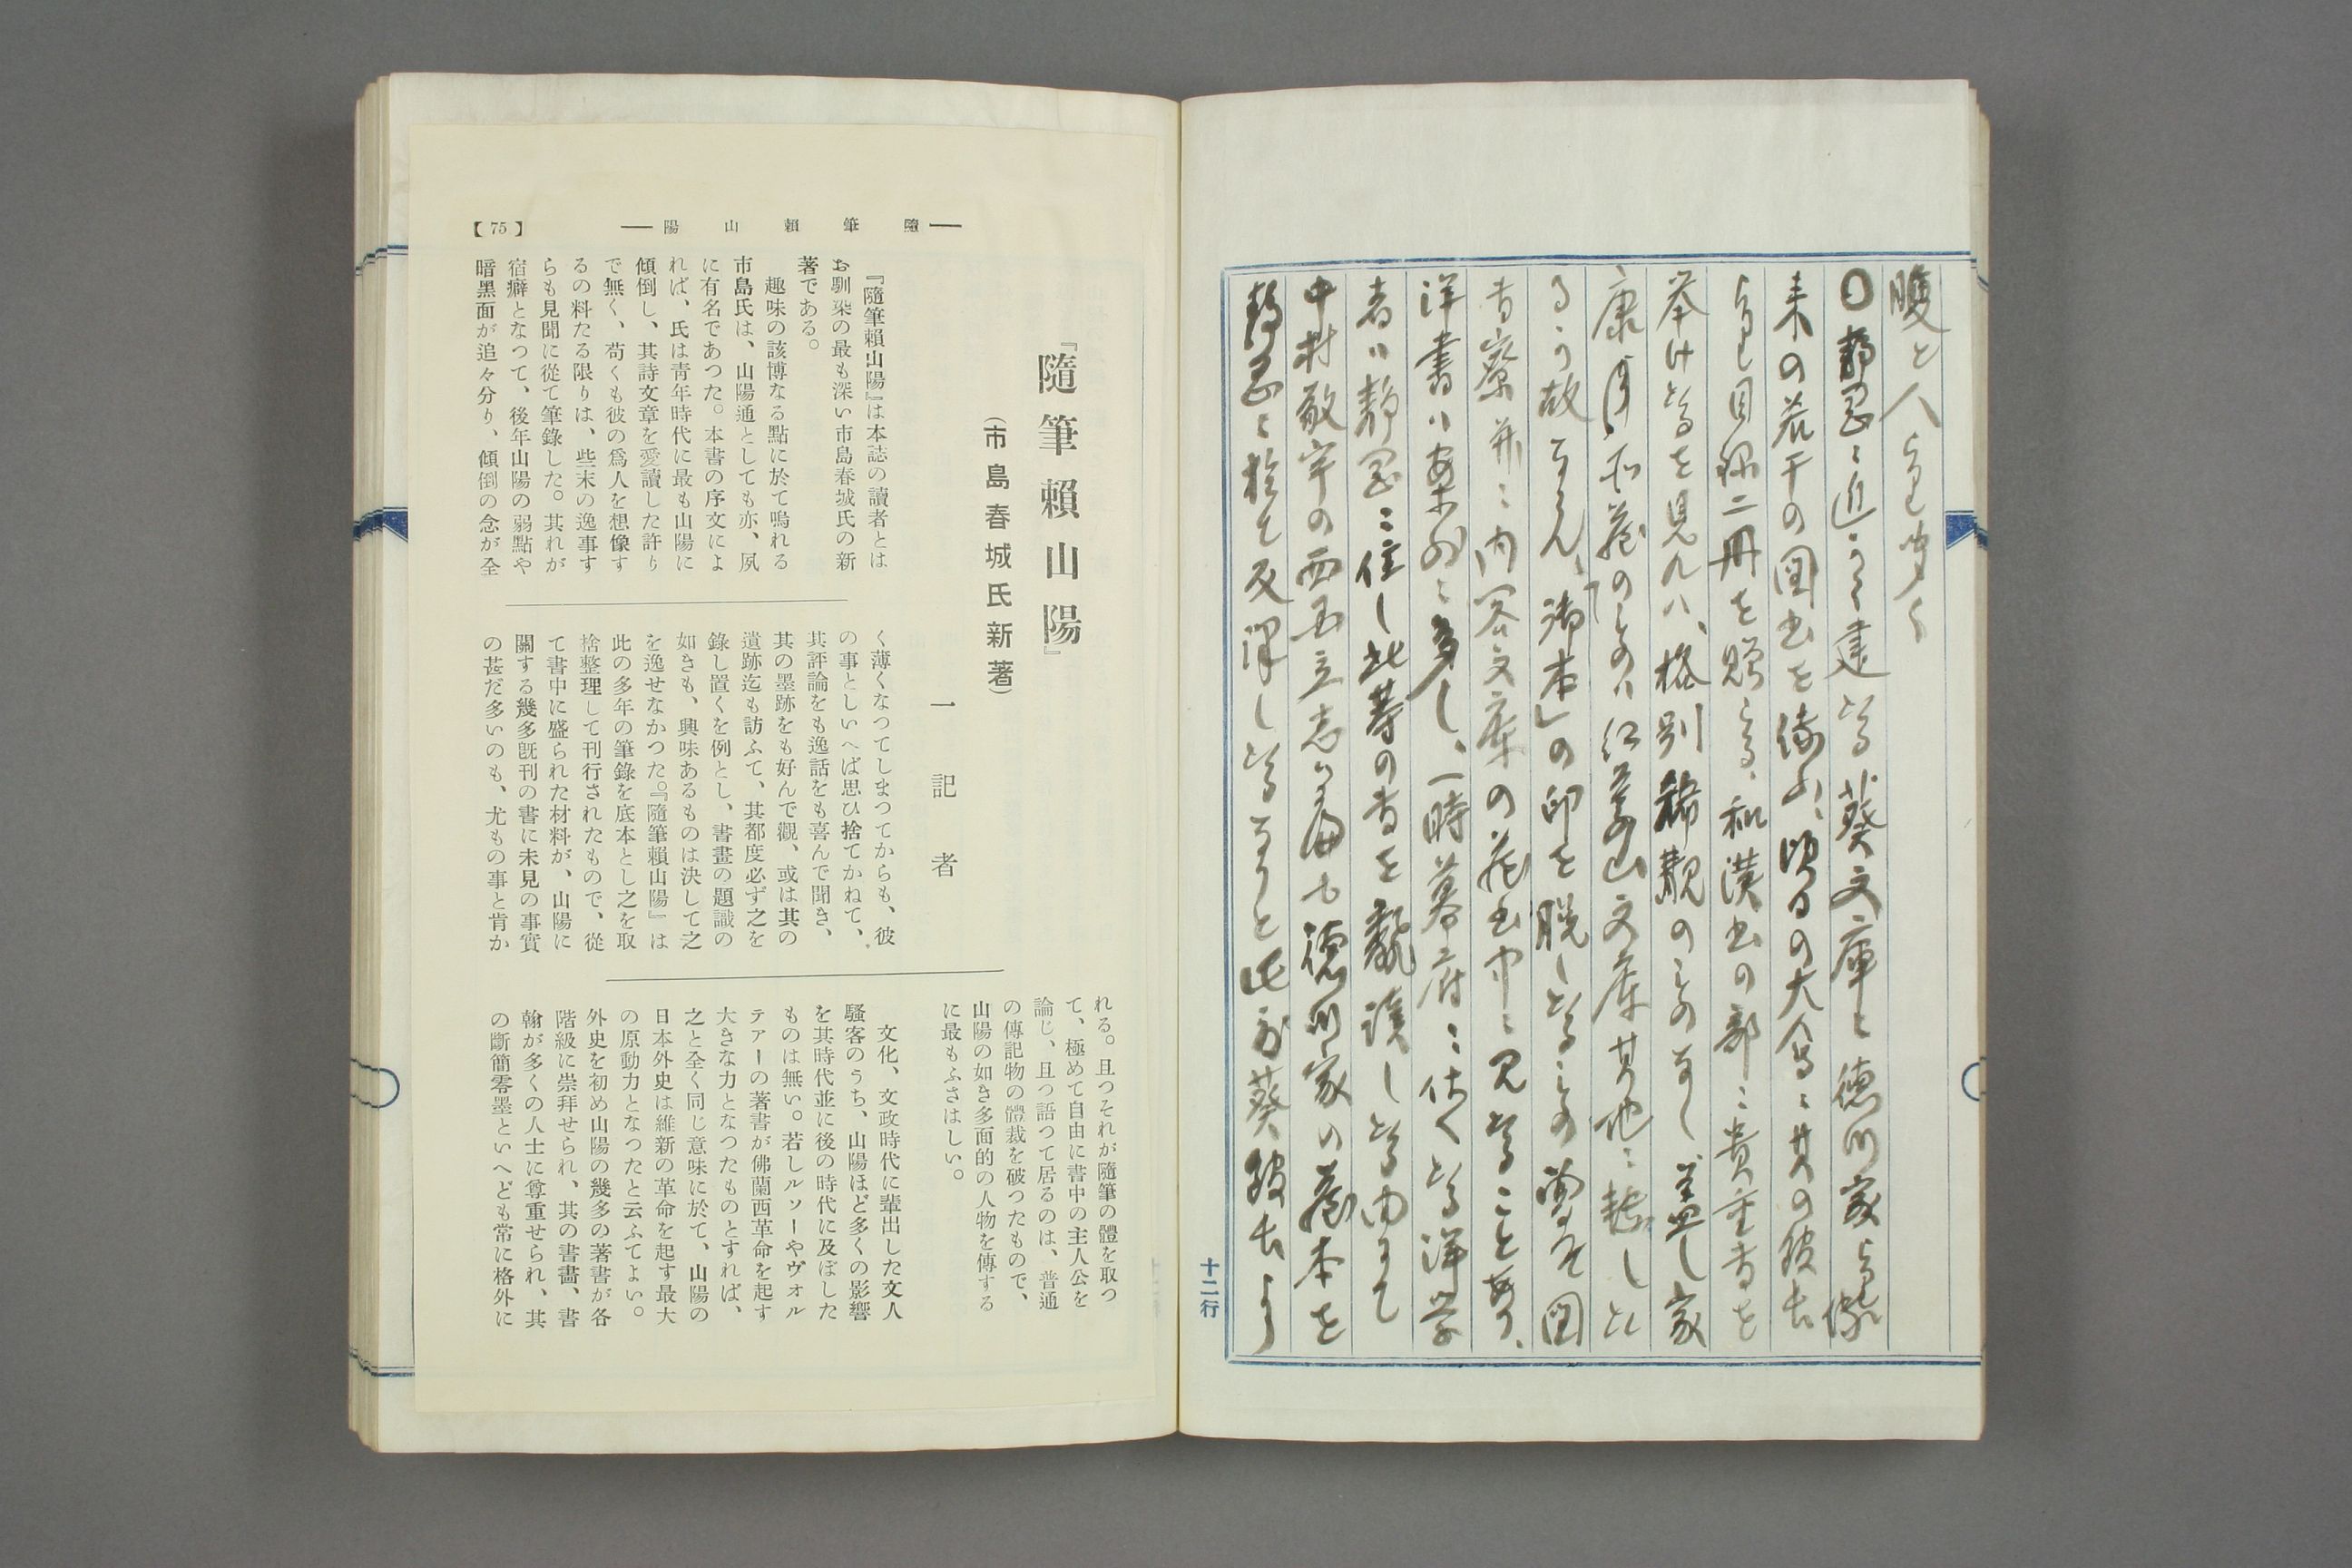 〇静岡ニ近く建
葵文庫と徳川家
来の若干の図書を
目録二冊を贈らる、和漢書の部ニ貴重書を
挙げたるを見れハ、格別稀覯のものなし、蓋し家
康
紅葉山文庫其他ニ
る故ならん、「御本」の印を
内容文庫の蔵書中ニ
洋書ハ案外ニ多し、一時幕府ニ仕へたる洋学
者ハ静岡ニ住し此等の書を翻読し
中村敬宇の西国立志編も徳川家の蔵本を
静岡ニ於て反訳したる
十二行
【75】
── 隨筆賴山陽 ──
『隨筆賴山陽』
(市島春城氏新著)
一記者
『隨筆賴山陽』は本誌の讀者とは
お馴染の最も深い市島春城氏の新
著である。
趣味の該博なる點に於て鳴れる
市島氏は、山陽通としても亦、夙
に有名であつた。本書の序文によ
れば、氏は青年時代に最も山陽に
傾倒し、其詩文章を愛讀した許り
で無く、苟くも彼の爲人を想像す
るの料たる限りは、些末の逸事す
らも見聞に從て筆錄した。其れが
宿癖となつて、後年山陽の弱點や
暗黑面が追々分り、傾倒の念が全
く薄くなつてしまつてからも、彼
の事としいへば思ひ捨てかねて、
其評論をも逸話をも喜んで聞き、
其の墨跡をも好んで觀、或は其の
遺跡迄も訪ふて、其都度必ず之を
錄し置くを例とし、書畫の題識の
如きも、興味あるものは決して之
を逸せなかつた。『隨筆賴山陽』は
此の多年の筆錄を底本とし之を取
捨整理して刊行されたもので、從
て書中に盛られた材料が、山陽に
關する幾多既刊の書に未見の事實
の甚だ多いのも、尤もの事と肯か
れる。且つそれが隨筆の體を取つ
て、極めて自由に書中の主人公を
論じ、且つ語つて居るのは、普通
の傳記物の體裁を破つたもので、
山陽の如き多面的の人物を傳する
に最もふさはしい。
文化、文政時代に輩出した文人
騷客のうち、山陽ほど多くの影響
を其時代並に後の時代に及ぼした
ものは無い。若しルソーやヴォル
テアーの著書が佛蘭西革命を起す
大きな力となつたものとすれば、
之と全く同じ意味に於て、山陽の
日本外史は維新の革命を起す最大
の原動力となつたと云ふてよい。
外史を初め山陽の幾多の著書が各
階級に崇拜せられ、其の書畵、書
翰が多くの人士に尊重せられ、其
の斷簡零墨といへども常に格外に